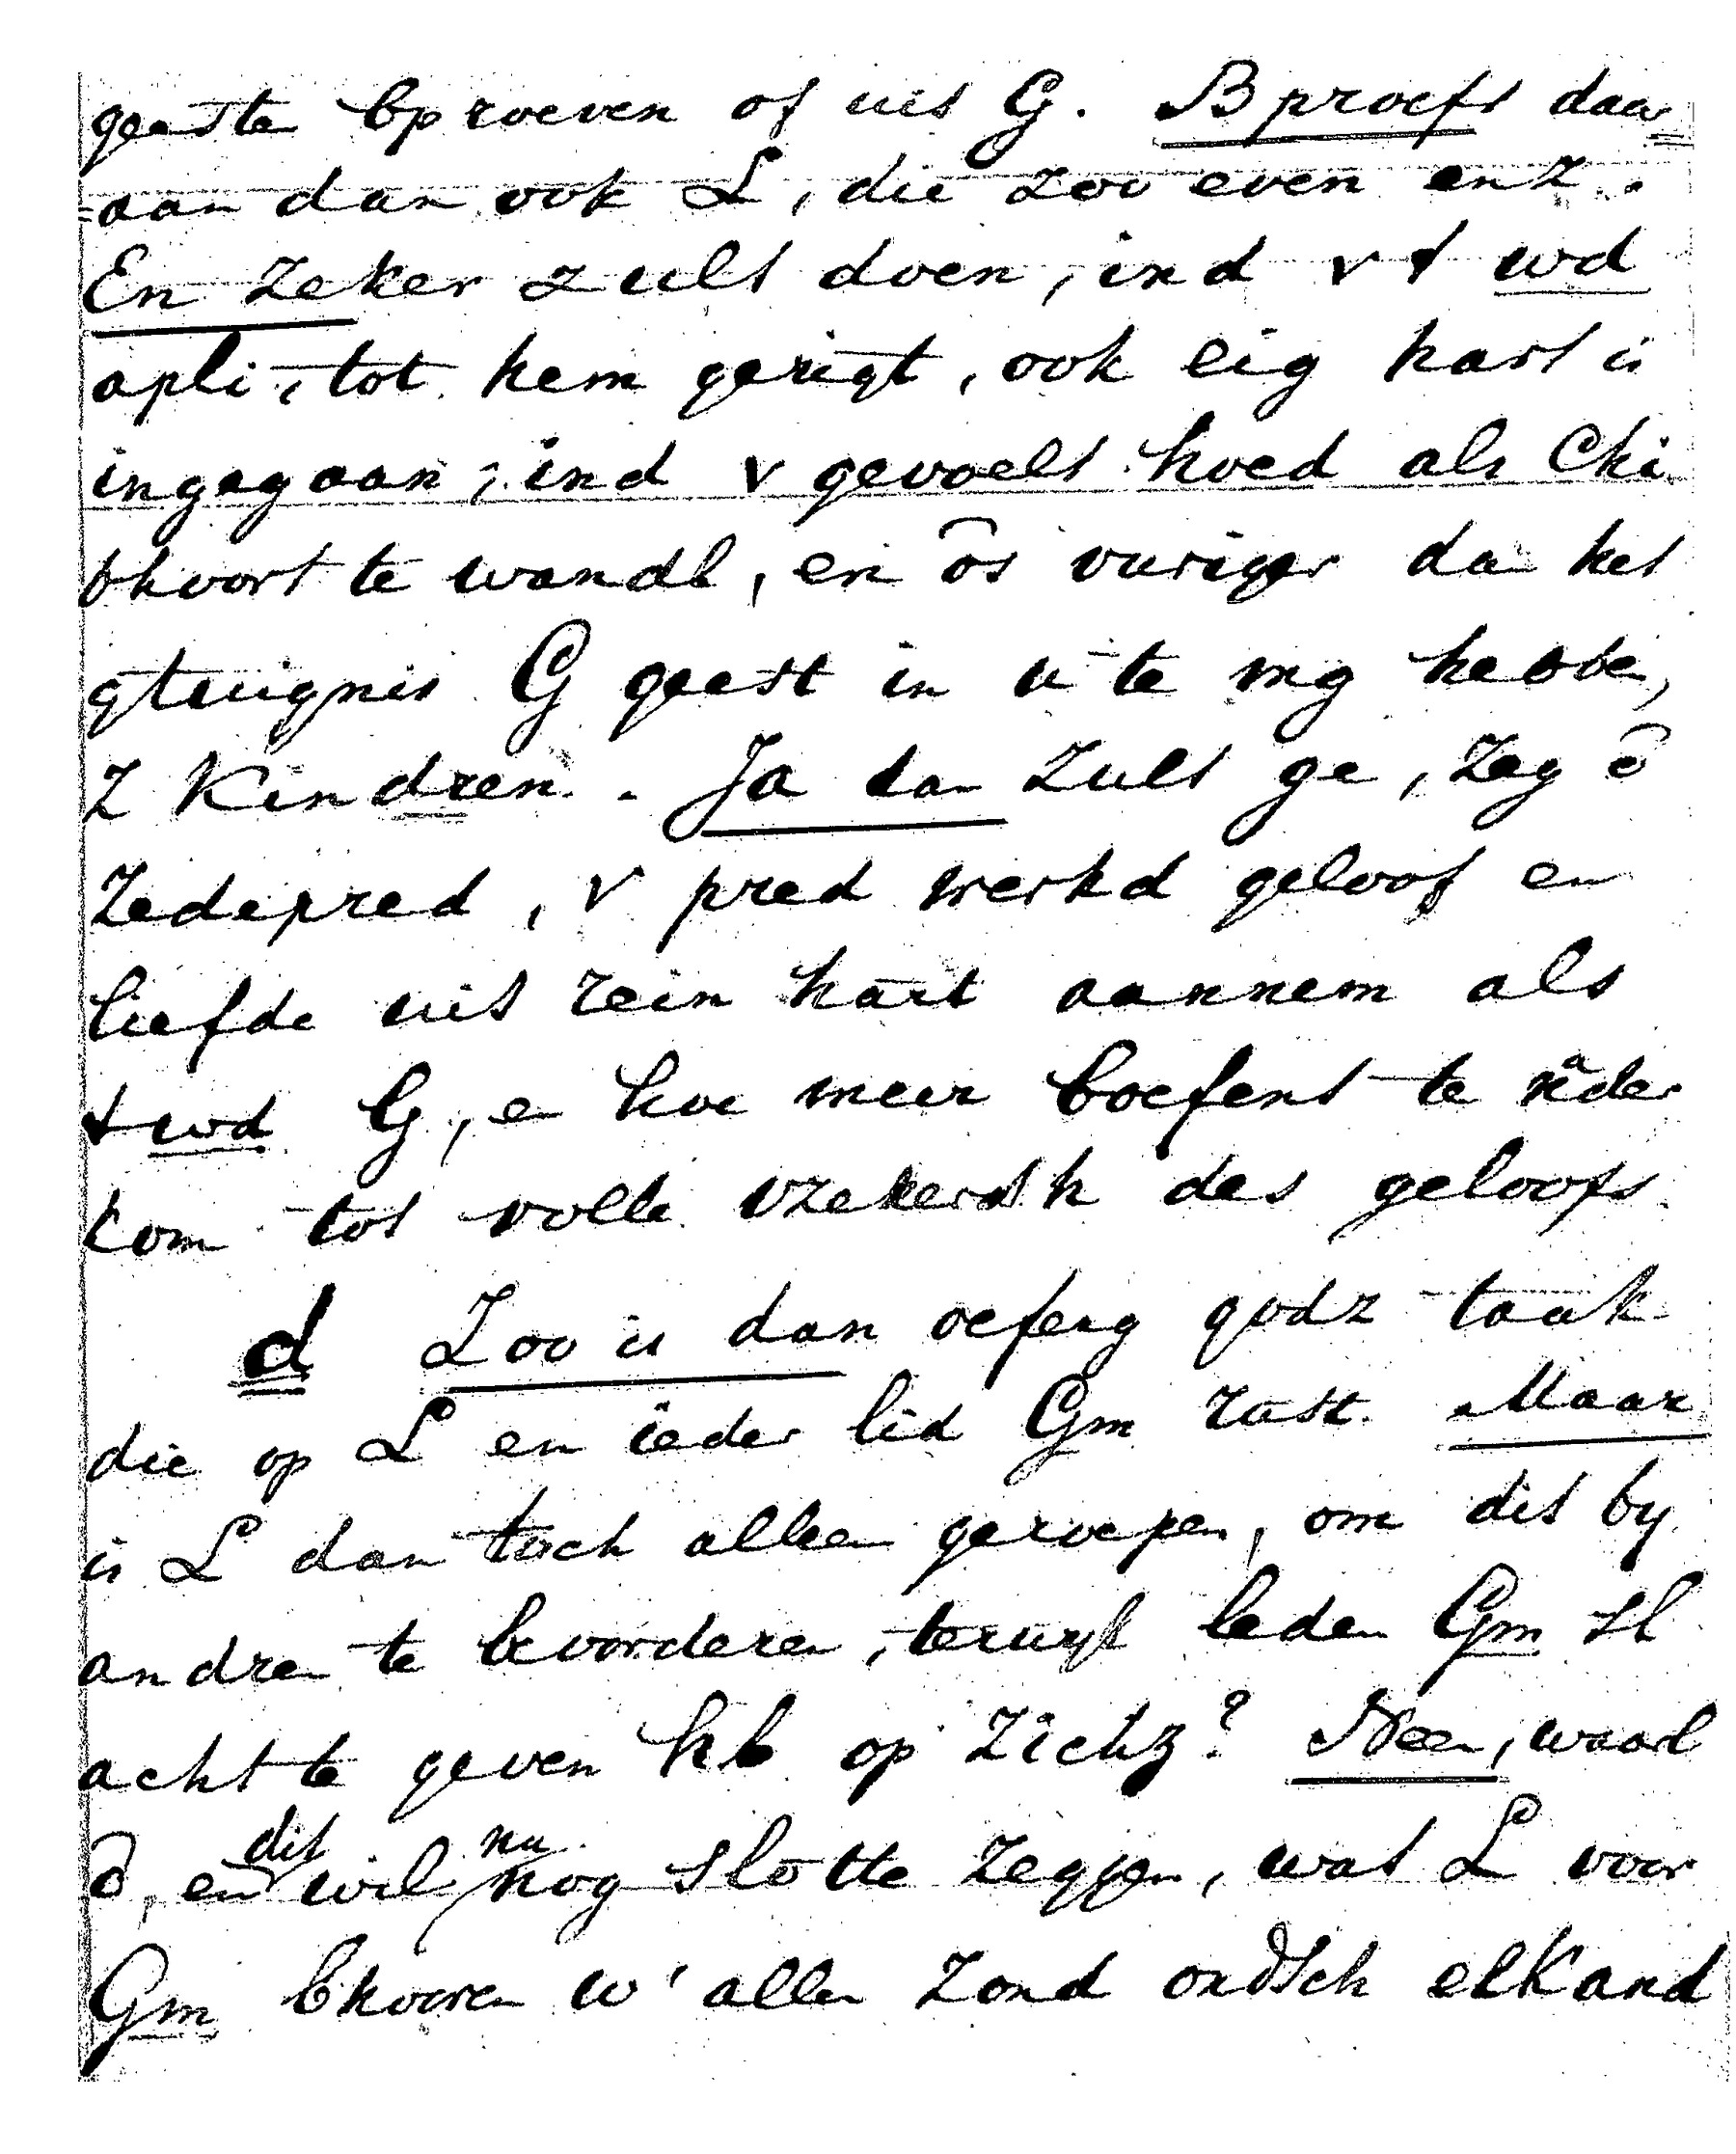 geeste bproeven of uit G. Bproeft daar
=aan dan ook L, die zoo even enz.
En zeker zult doen, ind v t wd
apli, tot hem gerigt, ook eig hart is
ingegaan, ind v gevoelt hoed als Chi
bhoort te wandl, en ôs vuriger da het
gtuignis G geest in u te mg hebbe,
Z kindren. Ja dan zult ge, zeg ô
Zedepred, v pred werkd geloof en
liefde uit rein hart aannem als
t wd G, e hoe meer boefent te nader
kom tot volle vzekerdh des geloofs.
d Zoo is dan oefeng godz taak
die op L en ieder lid Gm rust. Maar
is L dan toch alleen geroepen, om dit by
andren te bevorderen, terwyl leden Gm sl
acht te geven hb op zichz? Neen, waarl
ô, en dit wil nu nog slotte zeggen, wat L voor
Gm bhooren w' allen zond ondsch elkand